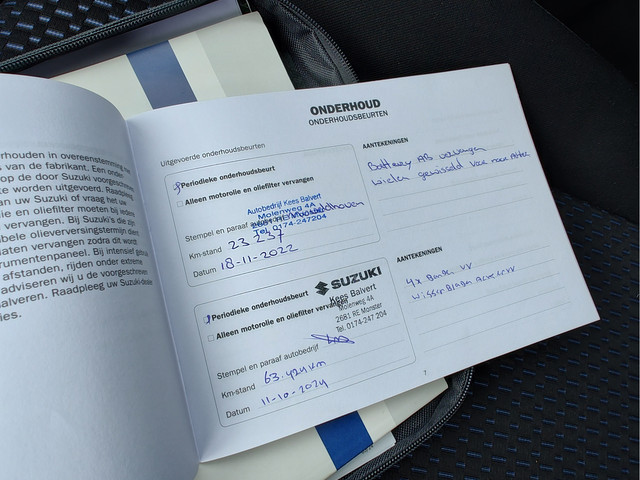 rhouden in overeenstemming
van de fabrikant. Een onder
op de door Suzuki voorgeschreven
te worden uitgevoerd. Raadpleeg
an uw Suzuki of vraag het uw
ie en oliefilter moeten bij iedere
vervangen. Bij Suzuki's die zijn
bele olieverversingstermijn dient
laten vervangen zodra dit wordt
rumentenpaneel. Bij intensief gebruik
afstanden, rijden onder extreme
adviseren wij u de voorgeschreven
alveren. Raadpleeg uw Suzuki-dealer
ies.
ONDERHOUD
ONDERHOUDSBEURTEN
Uitgevoerde onderhoudsbeurten
Periodieke onderhoudsbeurt
Alleen motorolie en oliefilter vervangen
Autobedrijf Kees Balvert
Molenweg 4A
Stempel en paraaf
Tel. 0174-247204
Km-stand 23 237
Datum 18-11-2022
AANTEKENINGEN
Battery AB vervangen
wielen gewisseld voor naar Achter
Periodieke onderhoudsbeurt
Alleen motorolie en oliefilter
SUZUKI
Kees Balvert
Molenweg 4A
2681 RE Monster
Tel. 0174-247 204
Stempel en paraaf autobedrijf
Km-stand 63.424km
Datum 11-10-2024
AANTEKENINGEN
4x Banden VV
wisser Bladen Achter VV
7